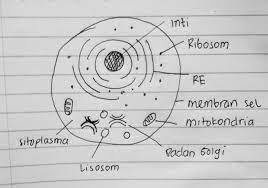 inti
Ribosom
RE
membran sel
mitokondria
Badan Golgi
sitoplasma
Lisosom